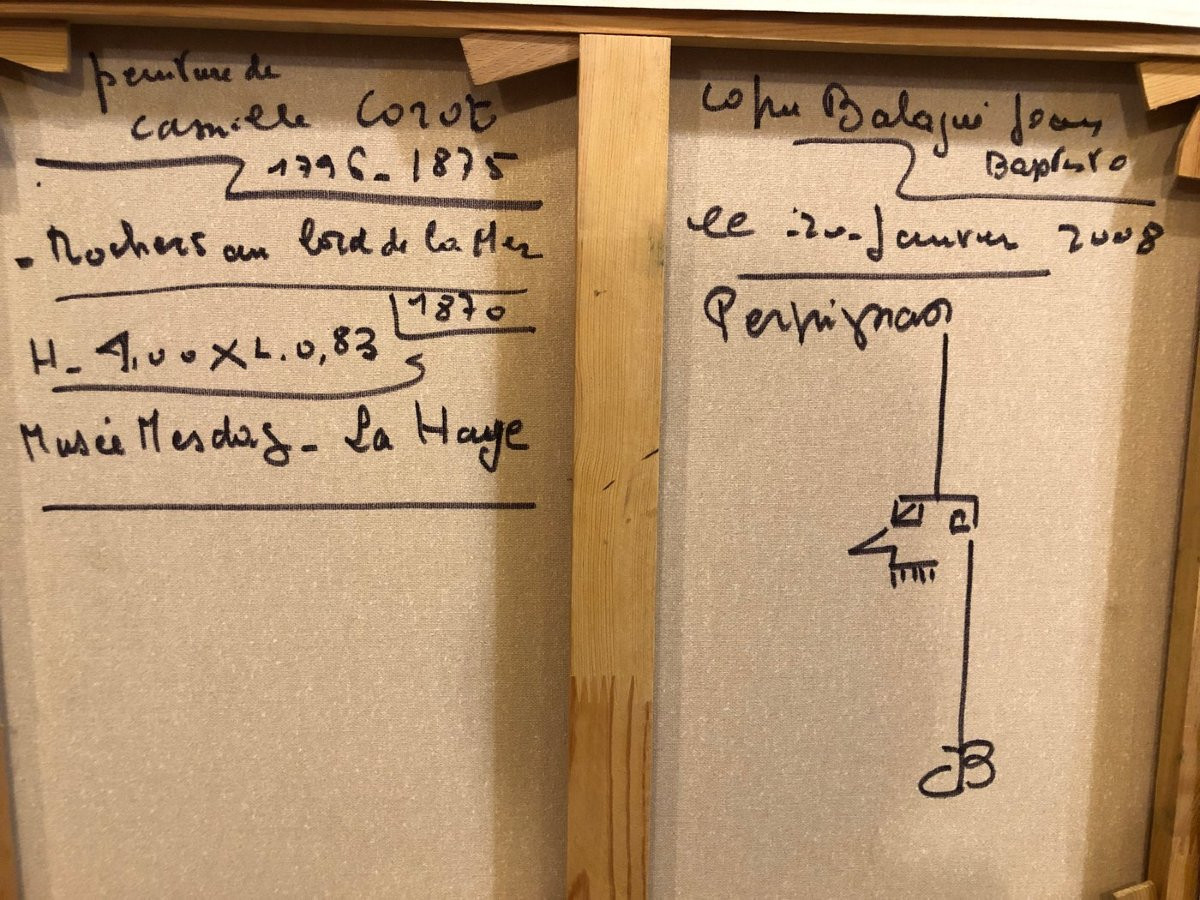 peinture de
camille Corot
1796-1875
- Rochers au bord de la Mer
1870
H- 1,00 X L. 0,83
Musée Mesdag - La Haye
copie Balagué Jean
Baptiste
le 20 - Janvier 2008
Perpignan
JB